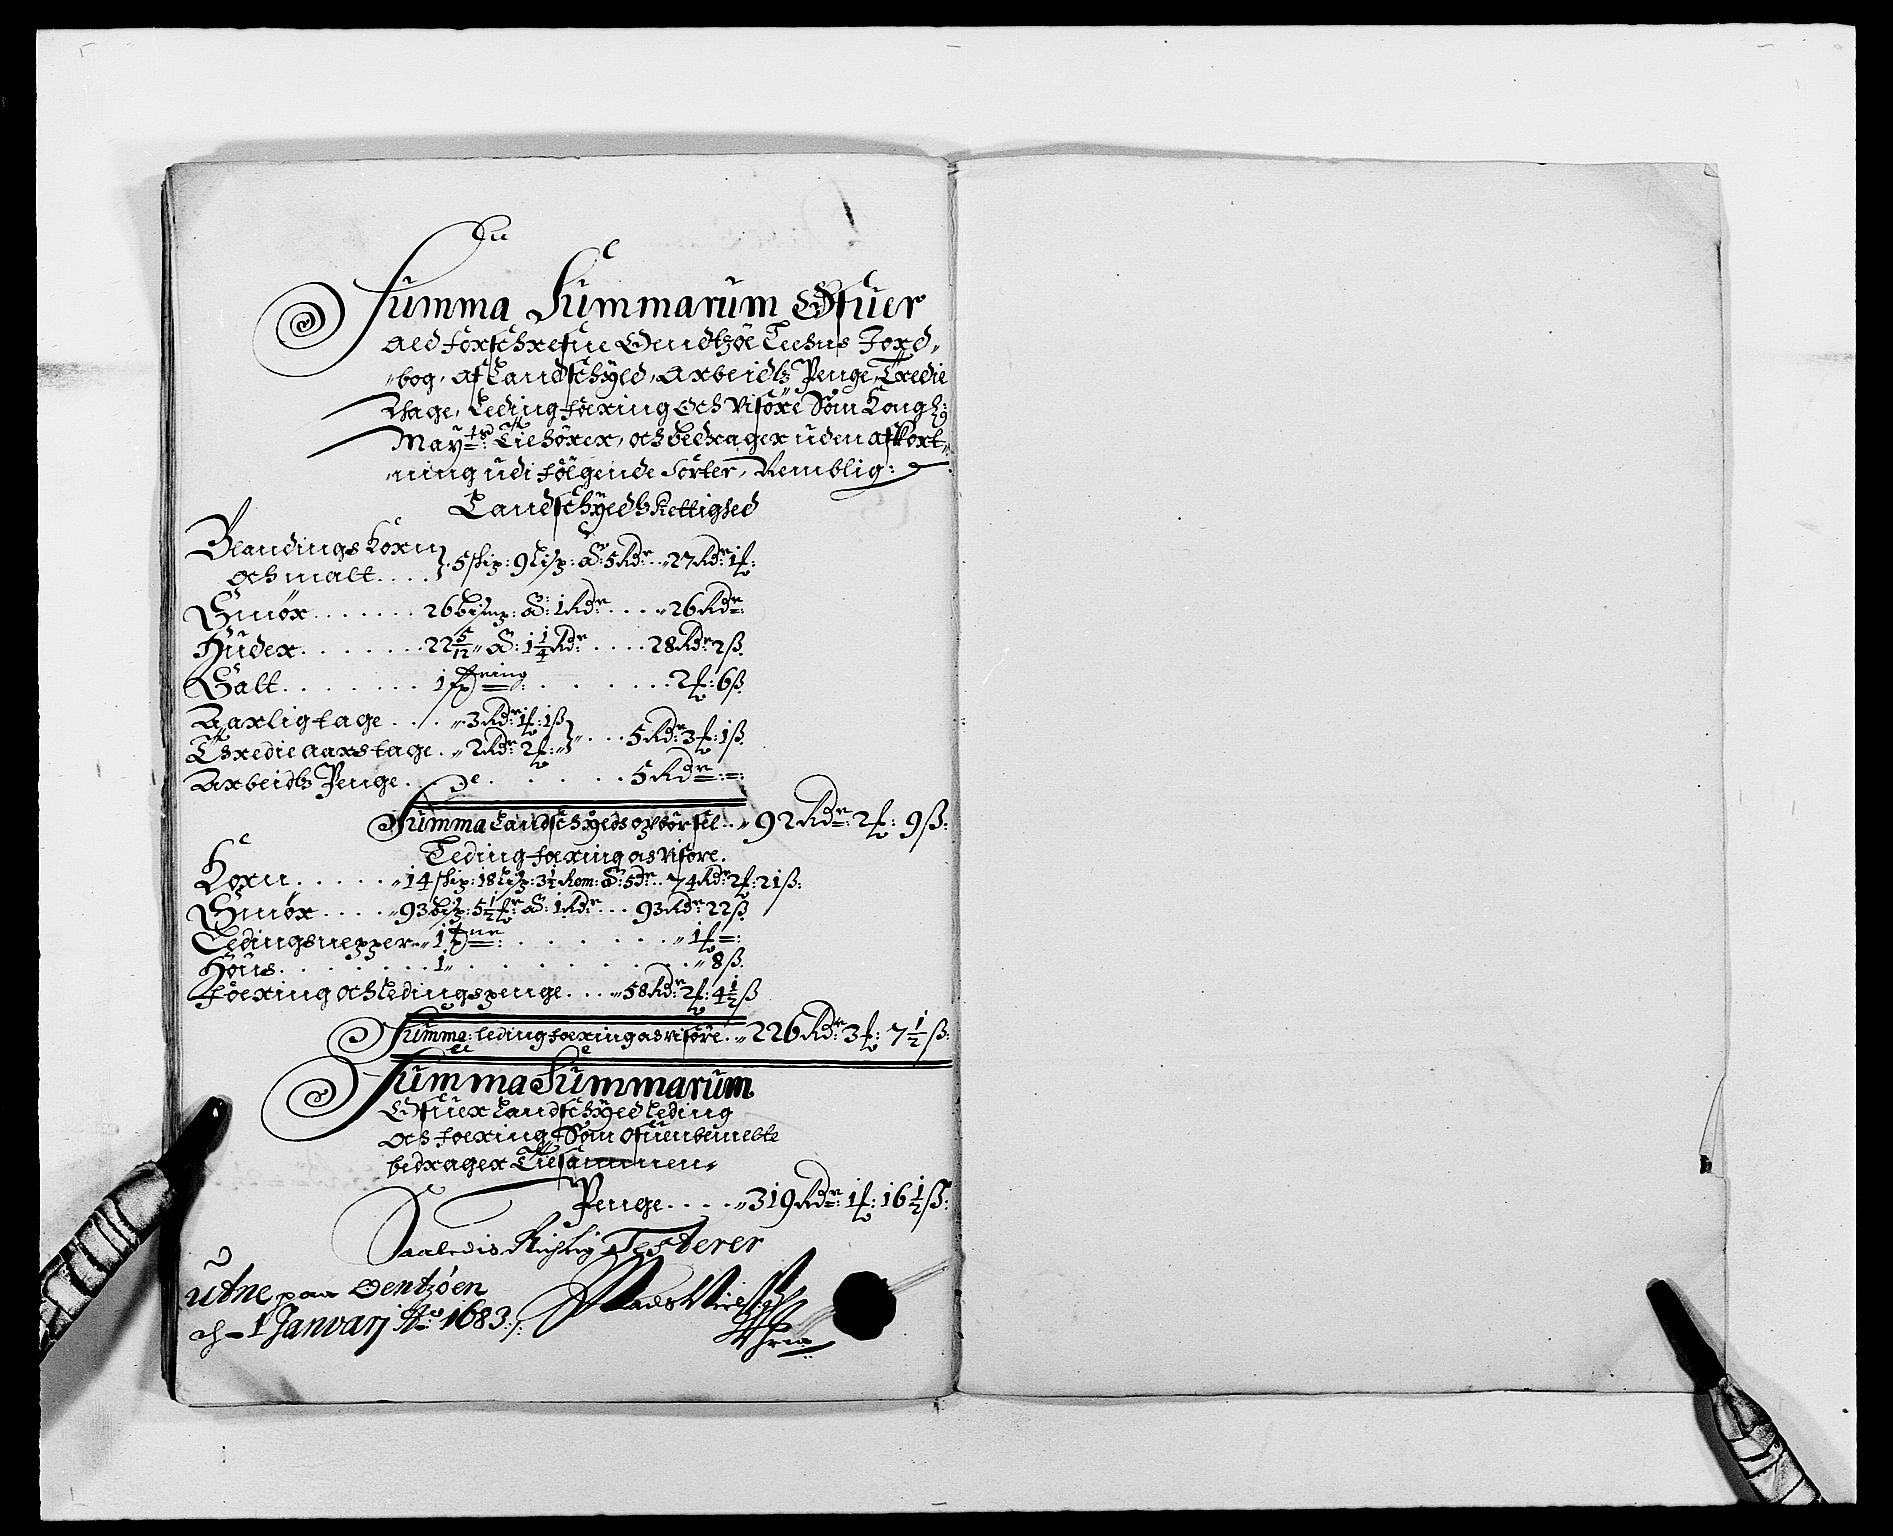 Summa Summarum Ofuer
ald forschrefne Oendtzöe Leehns Jord,,
,,bog, af Landschyld, Arbeidtz Penge, Tredie
Tage, Leding foering och Visöre Som Kongl:
Mayts: Tilhörer, och bedrager uden afkort,,
,,ning udi fölgende Sorter, Nemblig:
Landschyldts Rettighed
Blandings Korn
och malt.... 5 skip: 9 Lisp: à: 5 Rdr: ,,27 Rdr: 1 f:
Smör....... 26 bismp: à: 1 Rdr: .... ,,26 Rdr:
Huder....... 22 5/12 ,, à: 1 1/4 Rdr: .... 28 Rdr: 2 ß.
Salt....... 1 fring: ....... 2 f: 6 ß.
Aarligtage.... ,,3 Rdr: 1 f: 1 ß
Thredie aars tage. ,,2 Rdr: 2 f: ,, .... 5 Rdr: 3 f: 1 ß.
Arbeidtz Penge....... 5 Rdr: =:
Summa Landschylds opbörsel.. ,,92 Rdr: 2 f: 9 ß:
Leding foering as visöre.
Korn..... ,,14 skip: 18 Lisp: 3 1/2 Rem: à: 5 dr.. 74 Rdr: 2 f: 21 ß:
Smör.... ,,93 bsp: 5 1/2 à: 1 Rdr... 93 Rdr: 22 ß
Ledingsnepper ,,1 ....... ,,1 f =:
Höns....... 1,, ....... ,,8 ß.
Foering och Ledings penge.... ,,58 Rdr: 2 f: 4 1/2 ß
Summa: leding foering as visöre.. ,,226 Rdr: 3 f: 7 1/2 ß:
Summa Summarum
Ofuer Landschyld leding
och foering Som ofuenbemelte
bedrager Tilsammen,,
Penge..... ,,319 Rdr: 1 f: 16 1/2 ß:
Saaledis Richtig Testerer
Utne paa Oentzöen
d. 1 Januarj Ao 1683:
Mads